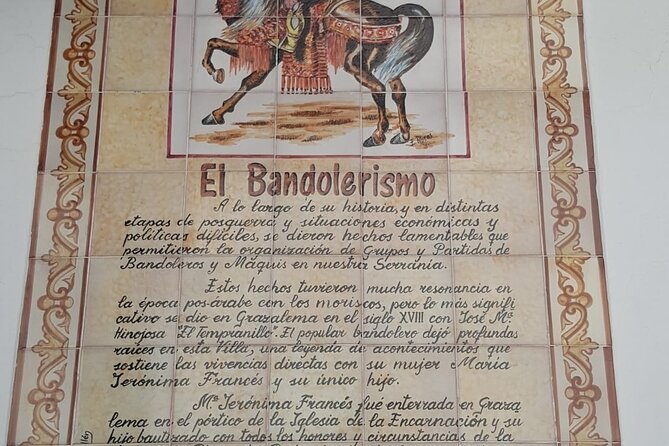 El Bandolerismo
A lo largo de su historia, y en distintas
etapas de posguerra y situaciones económicas y
políticas difíciles, se dieron hechos lamentables que
permitieron la organización de Grupos y Partidas de
Bandoleros y Maquis en nuestra Serranía.
Estos hechos tuvieron mucha resonancia en
la época pos-árabe con los moriscos, pero lo más signifi
cativo se dio en Grazalema en el siglo XVIII con José Mª
Hinojosa "El Tempranillo". El popular bandolero dejó profundas
raíces en esta Villa, una leyenda de acontecimientos que
sostiene las vivencias directas con su mujer María
Jerónima Francés y su único hijo.
Mª Jerónima Francés fué enterrada en Graza
lema en el pórtico de la Iglesia de la Encarnación y su
hijo bautizado con todos los honores y circunstancias de la